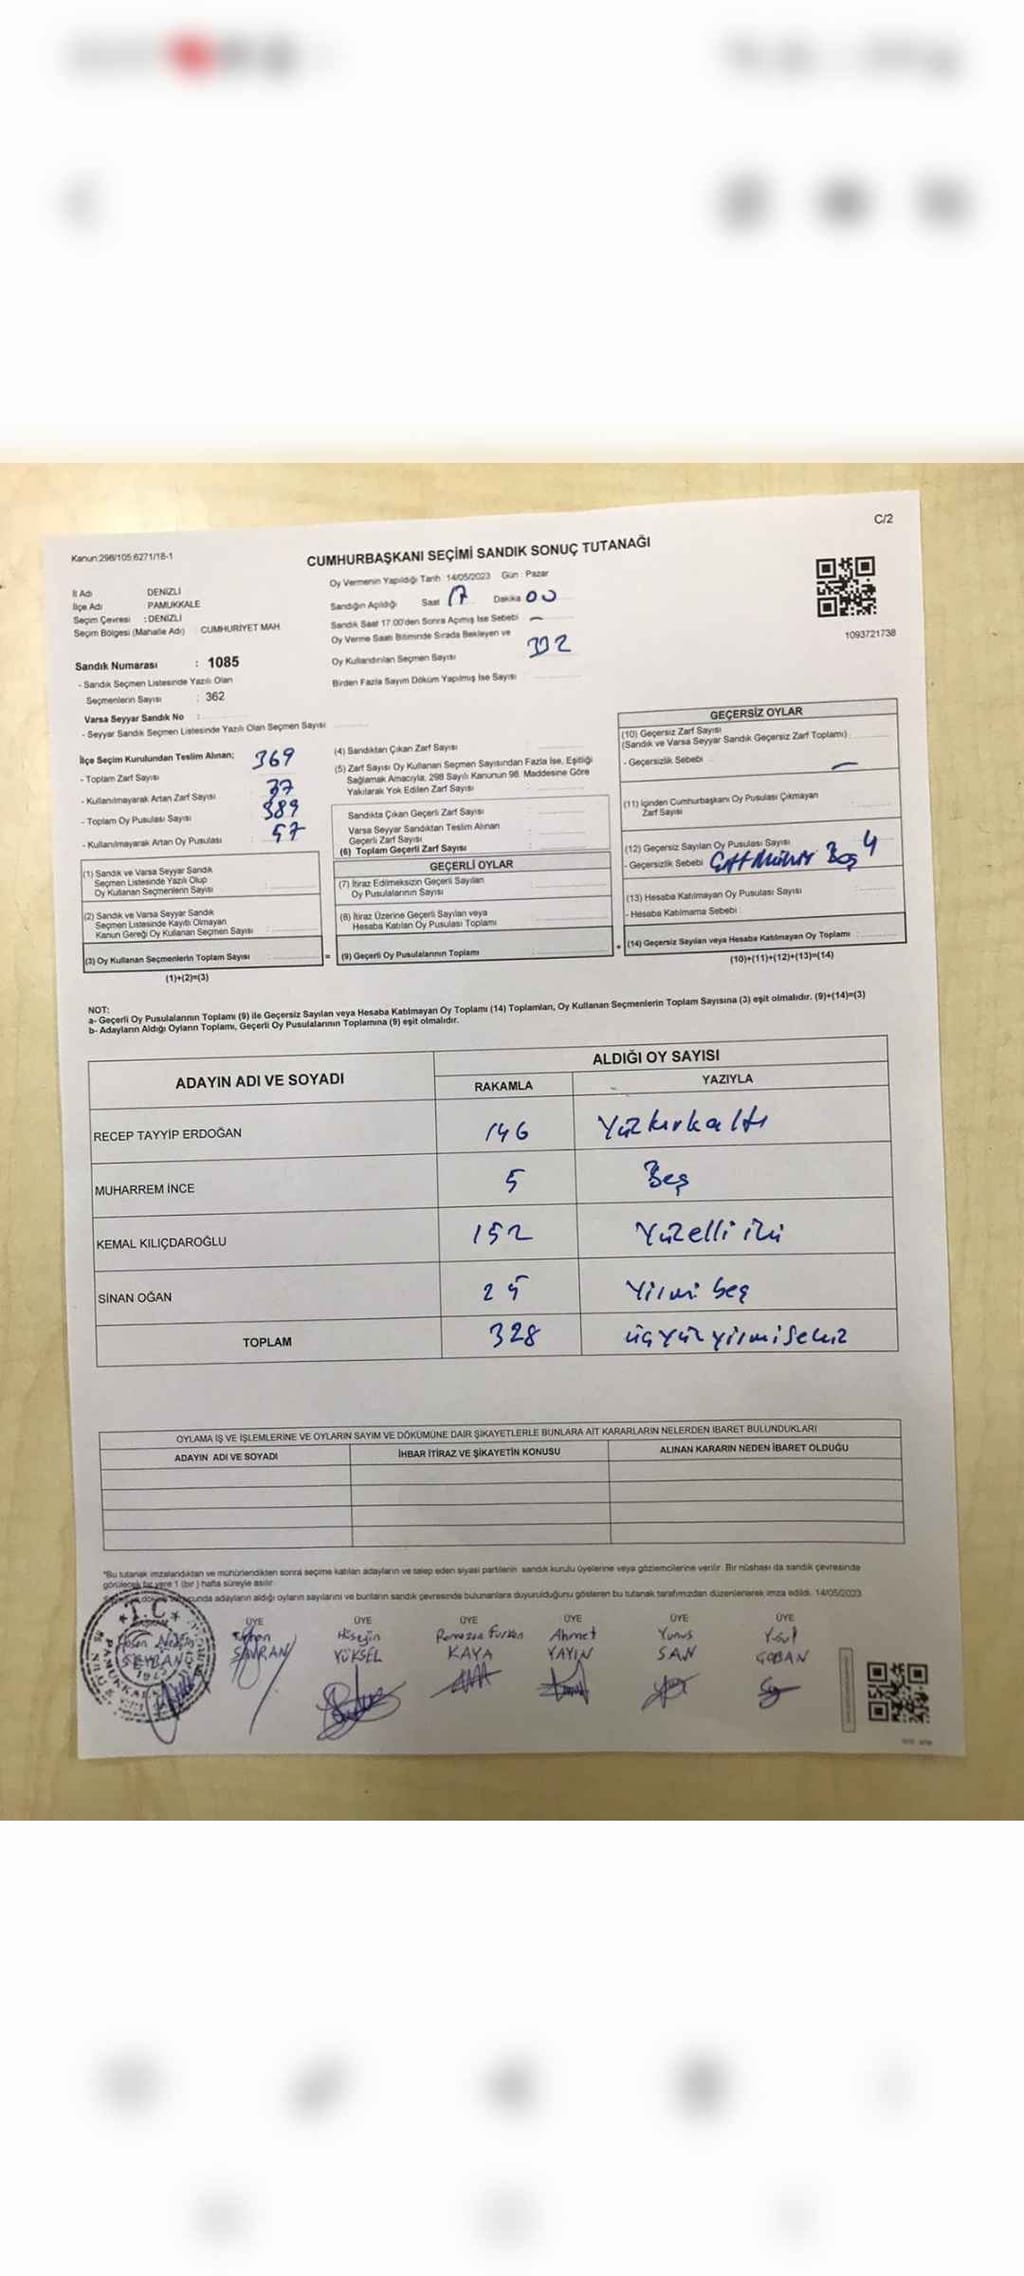 C/2
Kanun:298/105.6271/18-1
CUMHURBAŞKANI SEÇİMİ SANDIK SONUÇ TUTANAĞI
1093721738
İl Adı DENİZLİ
İlçe Adı PAMUKKALE
Seçim Çevresi : DENİZLİ
Seçim Bölgesi (Mahalle Adı) CUMHURİYET MAH
Sandık Numarası : 1085
- Sandık Seçmen Listesinde Yazılı Olan
Seçmenlerin Sayısı : 362
Varsa Seyyar Sandık No :
- Seyyar Sandık Seçmen Listesinde Yazılı Olan Seçmen Sayısı
Oy Vermenin Yapıldığı Tarih : 14/05/2023 Gün : Pazar
Sandığın Açıldığı Saat 17 Dakika 00
Sandık Saat 17:00'den Sonra Açımış İse Sebebi -
Oy Verme Saati Bitiminde Sırada Bekleyen ve
Oy Kullandırılan Seçmen Sayısı 332
Birden Fazla Sayım Döküm Yapılmış İse Sayısı
İlçe Seçim Kurulundan Teslim Alınan;
- Toplam Zarf Sayısı 369
- Kullanılmayarak Artan Zarf Sayısı 37
- Toplam Oy Pusulası Sayısı 389
- Kullanılmayarak Artan Oy Pusulası : 57
(1) Sandık ve Varsa Seyyar Sandık
Seçmen Listesinde Yazılı Olup
Oy Kullanan Seçmenlerin Sayısı
(2) Sandık ve Varsa Seyyar Sandık
Seçmen Listesinde Kayıtlı Olmayan
Kanun Gereği Oy Kullanan Seçmen Sayısı
(3) Oy Kullanan Seçmenlerin Toplam Sayısı
(1)+(2)=(3)
=
(4) Sandıktan Çıkan Zarf Sayısı
(5) Zarf Sayısı Oy Kullanan Seçmen Sayısından Fazla İse, Eşitliği
Sağlamak Amacıyla, 298 Sayılı Kanunun 98. Maddesine Göre
Yakılarak Yok Edilen Zarf Sayısı
Sandıkta Çıkan Geçerli Zarf Sayısı
Varsa Seyyar Sandıktan Teslim Alınan
Geçerli Zarf Sayısı
(6) Toplam Geçerli Zarf Sayısı
GEÇERLİ OYLAR
(7) İtiraz Edilmeksizin Geçerli Sayılan
Oy Pusulalarının Sayısı
(8) İtiraz Üzerine Geçerli Sayılan veya
Hesaba Katılan Oy Pusulası Toplamı
(9) Geçerli Oy Pusulalarının Toplamı
+
GEÇERSİZ OYLAR
(10) Geçersiz Zarf Sayısı
(Sandık ve Varsa Seyyar Sandık Geçersiz Zarf Toplamı)
- Geçersizlik Sebebi -
(11) İçinden Cumhurbaşkanı Oy Pusulası Çıkmayan
Zarf Sayısı
(12) Geçersiz Sayılan Oy Pusulası Sayısı 4
- Geçersizlik Sebebi Çift Mühür Boş
(13) Hesaba Katılmayan Oy Pusulası Sayısı
- Hesaba Katılmama Sebebi
(14) Geçersiz Sayılan veya Hesaba Katılmayan Oy Toplamı
(10)+(11)+(12)+(13)=(14)
NOT:
a- Geçerli Oy Pusulalarının Toplamı (9) ile Geçersiz Sayılan veya Hesaba Katılmayan Oy Toplamı (14) Toplamları, Oy Kullanan Seçmenlerin Toplam Sayısına (3) eşit olmalıdır. (9)+(14)=(3)
b- Adayların Aldığı Oyların Toplamı, Geçerli Oy Pusulalarının Toplamına (9) eşit olmalıdır.
ADAYIN ADI VE SOYADI
ALDIĞI OY SAYISI
RAKAMLA YAZIYLA
RECEP TAYYİP ERDOĞAN 146 Yüzkırkaltı
MUHARREM İNCE 5 Beş
KEMAL KILIÇDAROĞLU 152 Yüzelli iki
SİNAN OĞAN 25 Yirmi beş
TOPLAM 328 üçyüzyirmisekiz
OYLAMA İŞ VE İŞLEMLERİNE VE OYLARIN SAYIM VE DÖKÜMÜNE DAİR ŞİKAYETLERLE BUNLARA AİT KARARLARIN NELERDEN İBARET BULUNDUKLARI
ADAYIN ADI VE SOYADI İHBAR İTİRAZ VE ŞİKAYETİN KONUSU ALINAN KARARIN NEDEN İBARET OLDUĞU
*Bu tutanak imzalandıktan ve mühürlendikten sonra seçime katılan adayların ve talep eden siyasi partilerin sandık kurulu üyelerine veya gözlemcilerine verilir. Bir nüshası da sandık çevresinde
görülecek bir yere 1 (bir ) hafta süreyle asılır.
adayların aldığı oyların sayılarını ve bunların sandık çevresinde bulunanlara duyurulduğunu gösteren bu tutanak tarafımızdan düzenlenerek imza edildi. 14/05/2023
T.C.
SEYBAN
ÜYE ÜYE ÜYE ÜYE ÜYE ÜYE
Hüseyin Ramazan Furkan Ahmet Yunus
SAVRAN YÜKSEL KAYA YAYIN SAN ÇOBAN